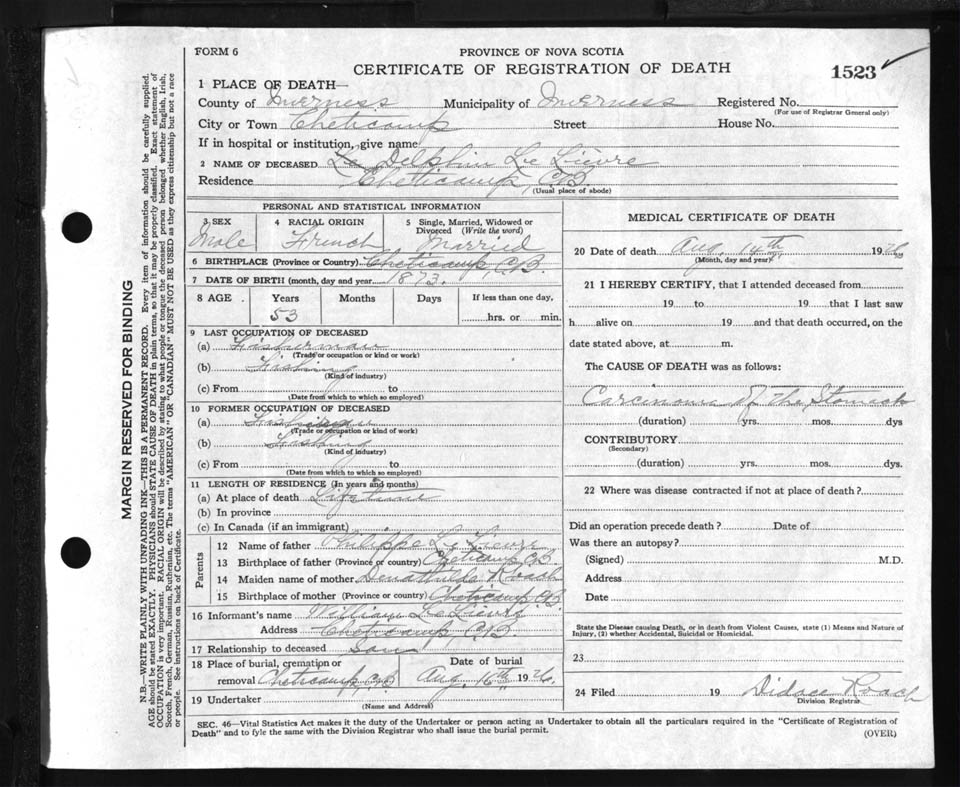 FORM 6
PROVINCE OF NOVA SCOTIA
CERTIFICATE OF REGISTRATION OF DEATH
1523
1 PLACE OF DEATH—
County of Inverness Municipality of Inverness Registered No.
(For use of Registrar General only)
City or Town Cheticamp Street House No.
If in hospital or institution, give name
2 NAME OF DECEASED Delphin Le Lievre
Residence Cheticamp, C.B.
(Usual place of abode)
PERSONAL AND STATISTICAL INFORMATION
3 SEX Male
4 RACIAL ORIGIN French
5 Single, Married, Widowed or Divorced (Write the word) Married
6 BIRTHPLACE (Province or Country) Cheticamp C.B.
7 DATE OF BIRTH (month, day and year) 1873.
8 AGE Years Months Days If less than one day,
53 hrs. or min.
9 LAST OCCUPATION OF DECEASED
(a) Fisherman
(Trade or occupation or kind or work)
(b) Fishing
(Kind of industry)
(c) From to
(Date from which to which so employed)
10 FORMER OCCUPATION OF DECEASED
(a) Fisherman
(Trade or occupation or kind of work)
(b) Fishing
(Kind of industry)
(c) From to
(Date from which to which so employed)
11 LENGTH OF RESIDENCE (In years and months)
(a) At place of death Lifetime
(b) In province
(c) In Canada (if an immigrant)
Parents
12 Name of father Philippe Le Lievre
13 Birthplace of father (Province or country) Cheticamp C.B.
14 Maiden name of mother Roach
15 Birthplace of mother (Province or country) Cheticamp, C.B.
16 Informant's name William Le Lievre
Address Cheticamp, C.B.
17 Relationship to deceased Son
18 Place of burial, cremation or removal Cheticamp, C.B.
Date of burial Aug. 16th 1926.
19 Undertaker
(Name and Address)
MEDICAL CERTIFICATE OF DEATH
20 Date of death Aug. 14th 1926
(Month, day and year)
21 I HEREBY CERTIFY, that I attended deceased from
19 to 19 that I last saw
h alive on 19 and that death occurred, on the
date stated above, at m.
The CAUSE OF DEATH was as follows:
Carcinoma of the Stomach
(duration) yrs. mos. dys
CONTRIBUTORY
(Secondary)
(duration) yrs. mos. dys.
22 Where was disease contracted if not at place of death?
Did an operation precede death? Date of
Was there an autopsy?
(Signed) M.D.
Address
Date
State the Disease causing Death, or in death from Violent Causes, state (1) Means and Nature of
Injury, (2) whether Accidental, Suicidal or Homicidal.
23
24 Filed 19 Didace Roach
Division Registrar
SEC. 46—Vital Statistics Act makes it the duty of the Undertaker or person acting as Undertaker to obtain all the particulars required in the "Certificate of Registration of
Death" and to fyle the same with the Division Registrar who shall issue the burial permit.
(OVER)
MARGIN RESERVED FOR BINDING
N.B.—WRITE PLAINLY WITH UNFADING INK—THIS IS A PERMANENT RECORD. Every item of information should be carefully supplied.
AGE should be stated EXACTLY. PHYSICIANS should STATE CAUSE OF DEATH in plain terms, so that it may be properly classified. Exact statement of
OCCUPATION is very important. RACIAL ORIGIN will be described by stating to what people or tongue the deceased person belonged whether English, Irish,
Scotch, French, German, Russian, Ruthenian, etc. The terms "AMERICAN" or "CANADIAN" MUST NOT BE USED as they express citizenship but not a race
or people. See instructions on back of Certificate.